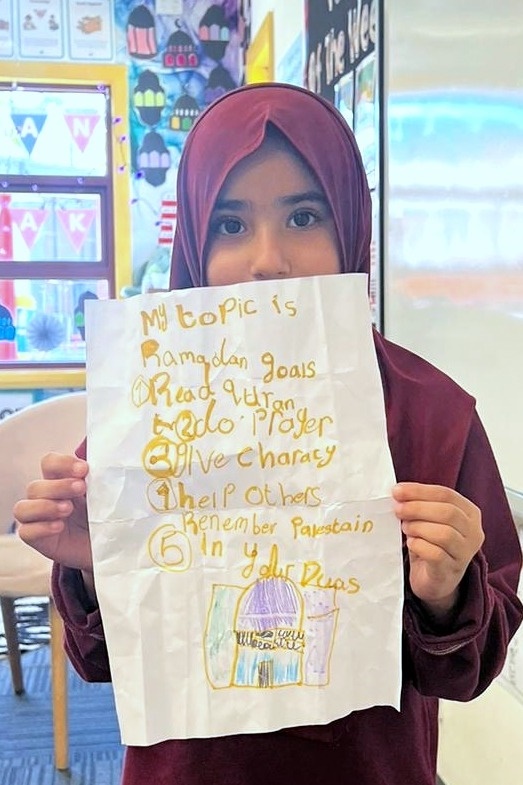 My topic is
Ramadan goals
1 Read quran
2 do prayer
3 give characy
4 help others
Remember Palestain
5 in your Duas
of the Wee
A N
A K